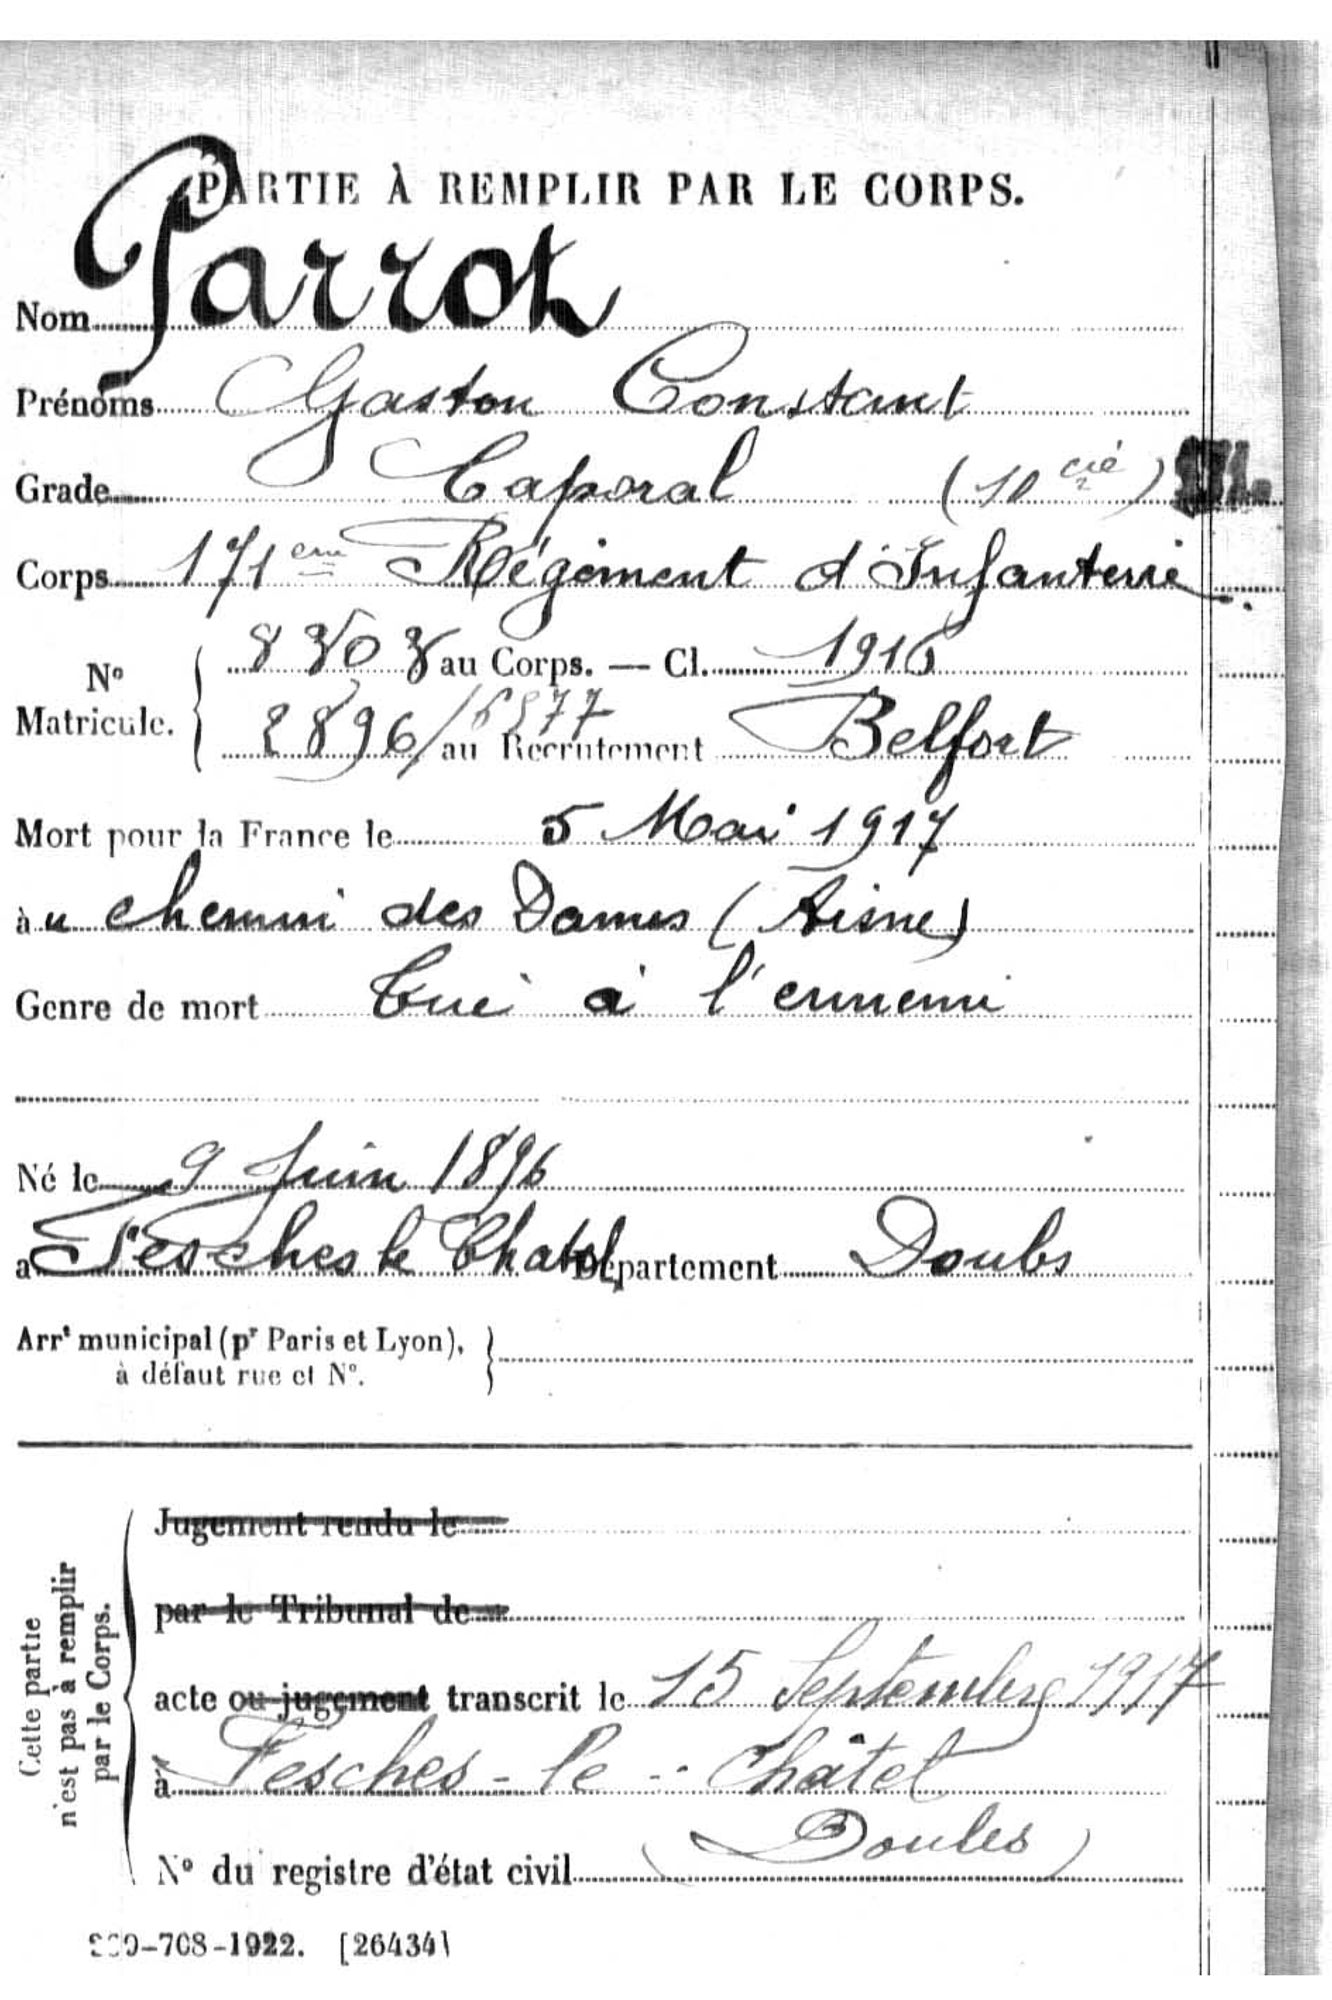 PARTIE À REMPLIR PAR LE CORPS.
Nom Parrot
Prénoms Gaston Constant
Grade Caporal (10 cie)
Corps 171 em Régiment d'Infanterie
N° Matricule. 8303 au Corps. — Cl. 1916
2896/6577 au Recrutement Belfort
Mort pour la France le 5 Mai 1917
à u chemin des Dames (Aisne)
Genre de mort Tué à l'ennemi
Né le 9 Juin 1896
à Fesches le Chatel Département Doubs
Arrt municipal (pr Paris et Lyon),
à défaut rue et N°.
Cette partie
n'est pas à remplir
par le Corps.
Jugement rendu le
par le Tribunal de
acte ou jugement transcrit le 15 Septembre 1917
à Fesches-le-Châtel
(Doubs)
N° du registre d'état civil
-708-1922. [26434]